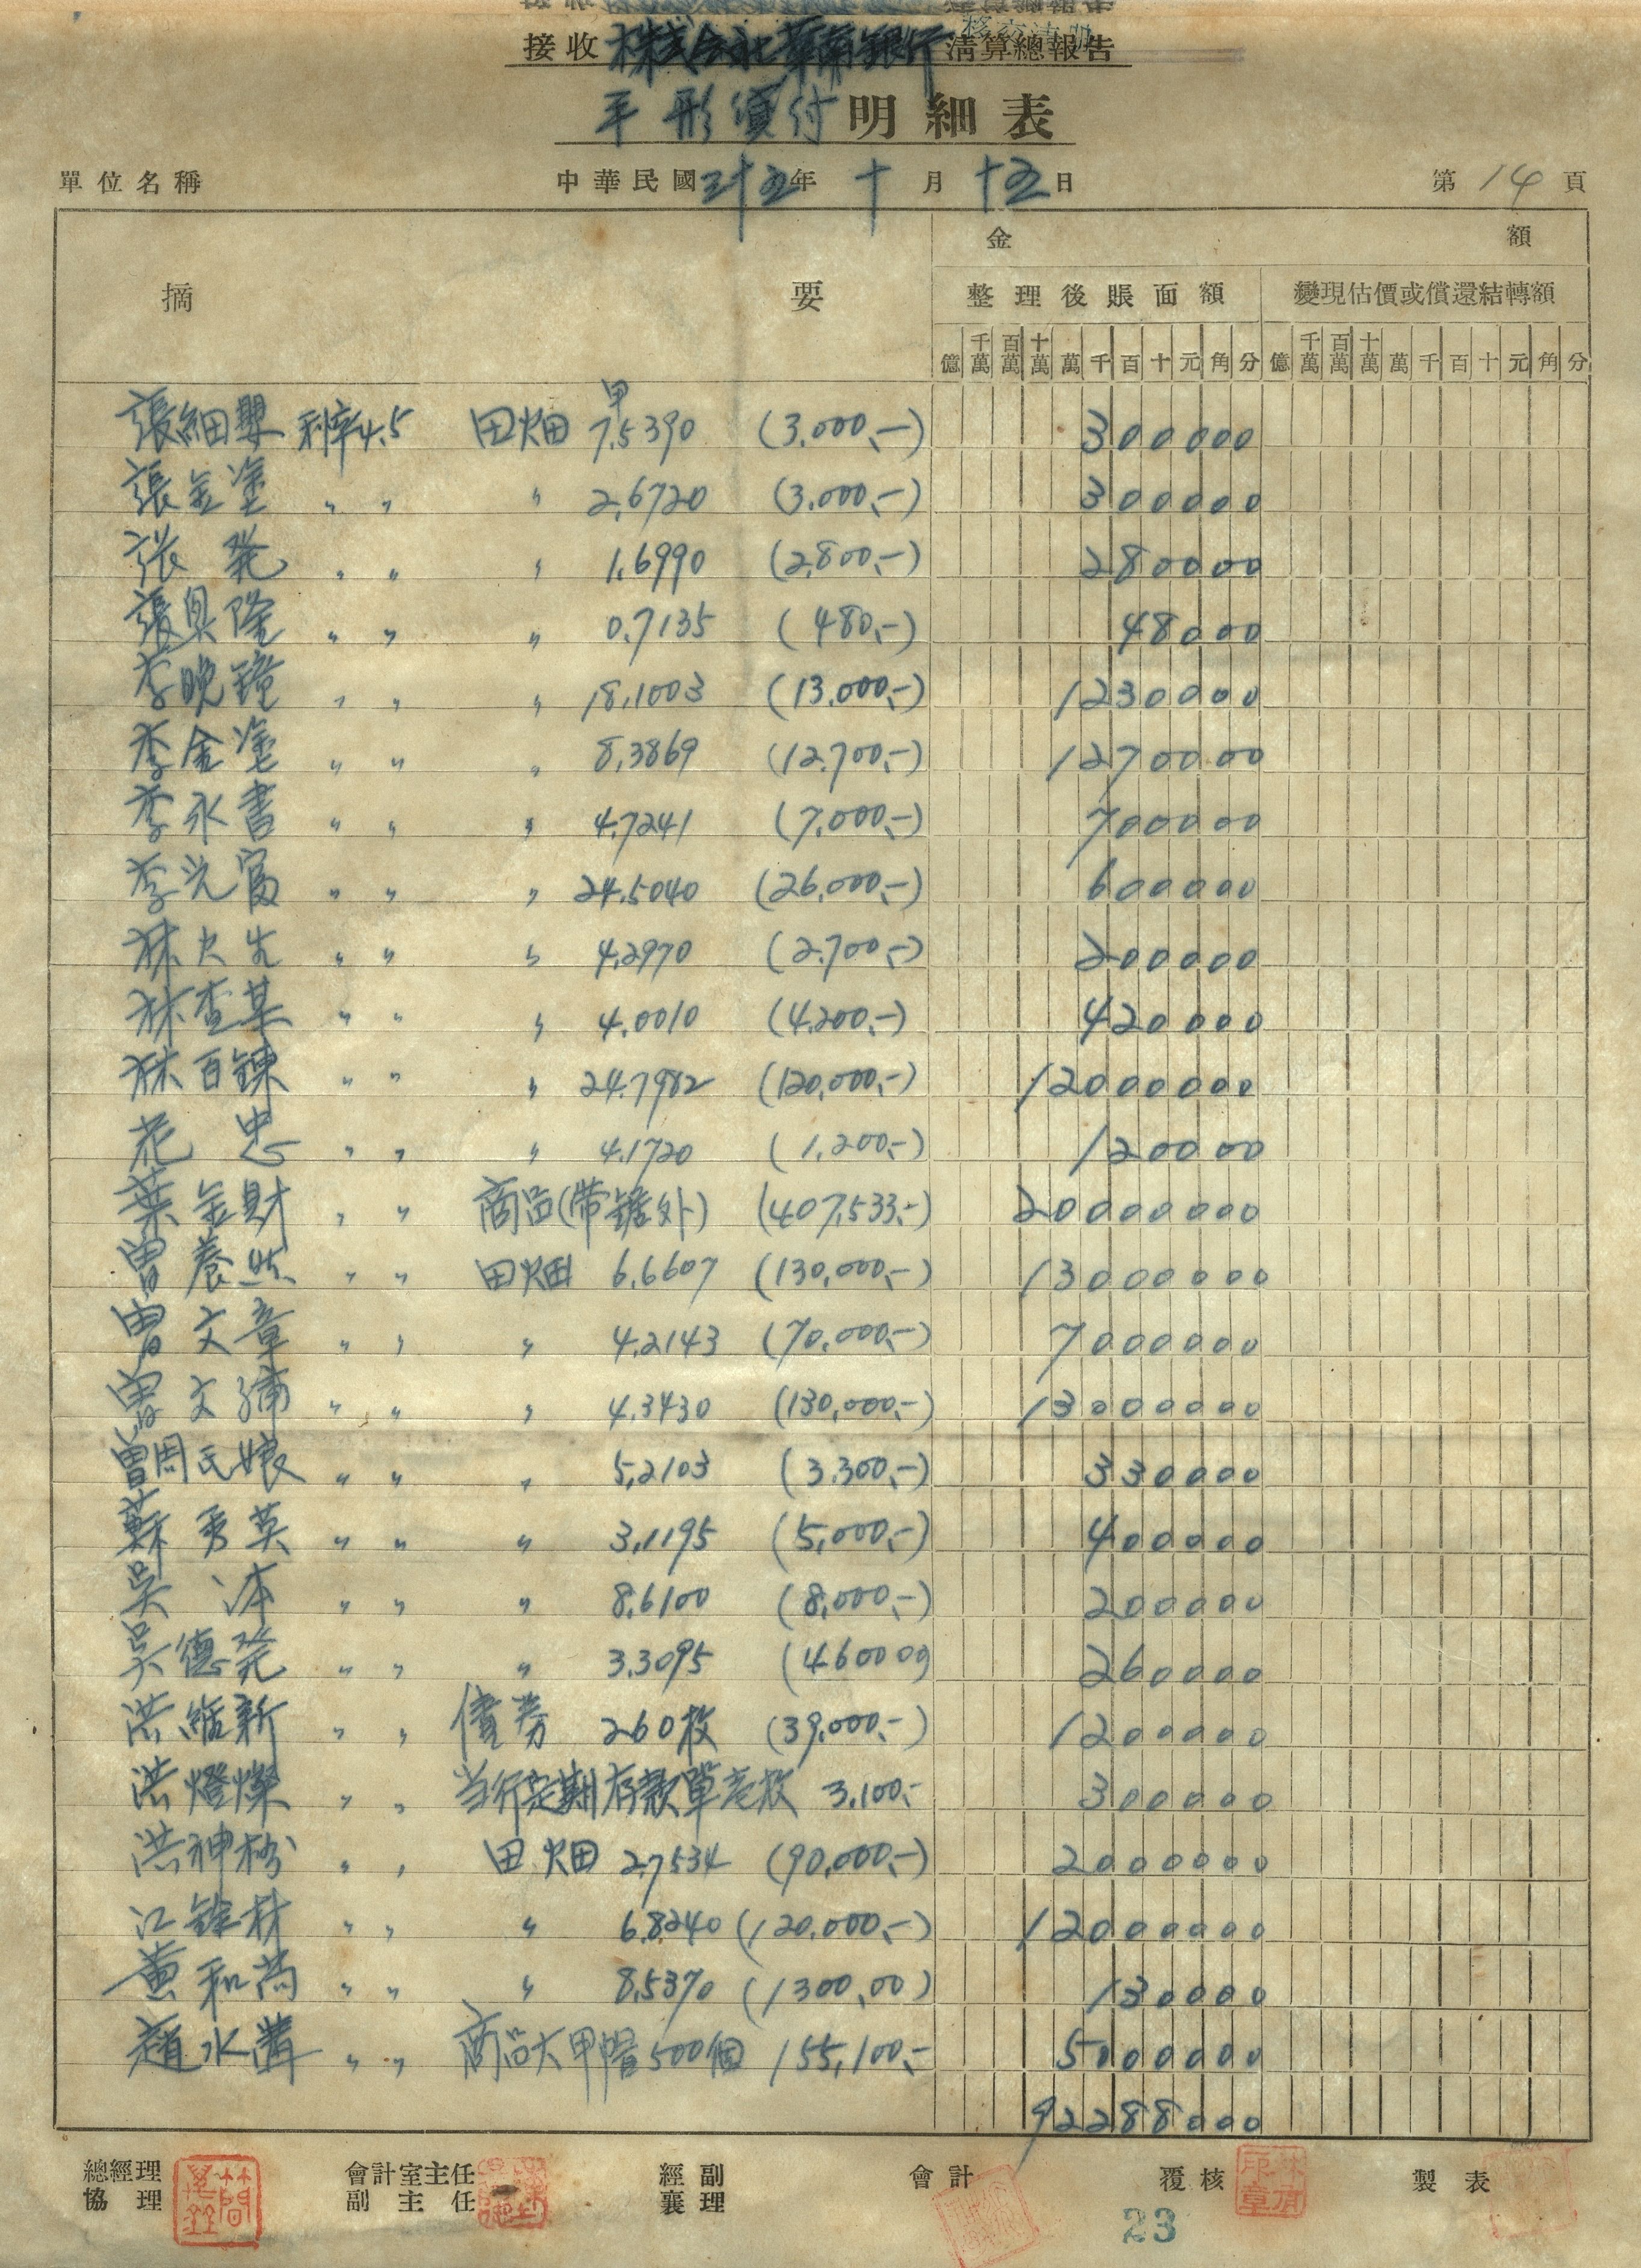 接收 株式会社華南銀行 清算總報告
手形貸付明細表
單位名稱 中華民國三十五年十月十五日 第14頁
摘要 金額
整理後賬面額 變現估價或償還結轉額
億 千萬 百萬 十萬 萬 千 百 十 元 角 分 億 千萬 百萬 十萬 萬 千 百 十 元 角 分
甲
張細嬰 利率4.5 田畑 7.5390 (3.000.—) 300000
張金塗 〃 〃 〃 2.6720 (3.000.—) 300000
張発 〃 〃 〃 1.6990 (2.800.—) 280000
張興隆 〃 〃 〃 0.7135 (480.—) 48000
李晚鐘 〃 〃 〃 18.1003 (13.000.—) 1230000
李金塗 〃 〃 〃 8.3869 (12.700.—) 1270000
李永書 〃 〃 〃 4.7241 (7.000.—) 700000
李 〃 〃 〃 24.5040 (26.000.—) 600000
林火生 〃 〃 〃 4.2970 (2.700.—) 200000
林查某 〃 〃 〃 4.0010 (4.200.—) 420000
林百鍊 〃 〃 〃 24.7982 (120.000.—) 12000000
花忠 〃 〃 〃 4.1720 (1.200.—) 120000
葉金財 〃 〃 商品(帶鋸外) (407.533.—) 20000000
曾養 〃 〃 田畑 6.6607 (130,000.—) 13000000
曾文章 〃 〃 〃 4.2143 (70.000.—) 7000000
曾文彌 〃 〃 〃 4.3430 (130,000.—) 13000000
曾周氏娘 〃 〃 〃 5.2103 (3.300.—) 330000
蘇秀英 〃 〃 〃 3.1195 (5,000.—) 400000
吳 〃 〃 〃 8.6100 (8,000.—) 200000
吳德発 〃 〃 〃 3.3095 (460000) 260000
洪維新 〃 〃 債券 260枚 (39,000.—) 1200000
洪燈燦 〃 〃 当行定期存款單壱枚 3.100.- 300000
洪神 〃 〃 田畑 2.7534 (90,000.—) 2000000
江鋒材 〃 〃 〃 6.8240 (120.000.—) 12000000
黃和尚 〃 〃 〃 8.5370 (1300.00) 130000
趙水溝 〃 〃 商品大甲帽500個 155,100.- 5000000
92288000
總經理 會計室主任 經副 會計 覆核 製表
協理 副主任 襄理
23